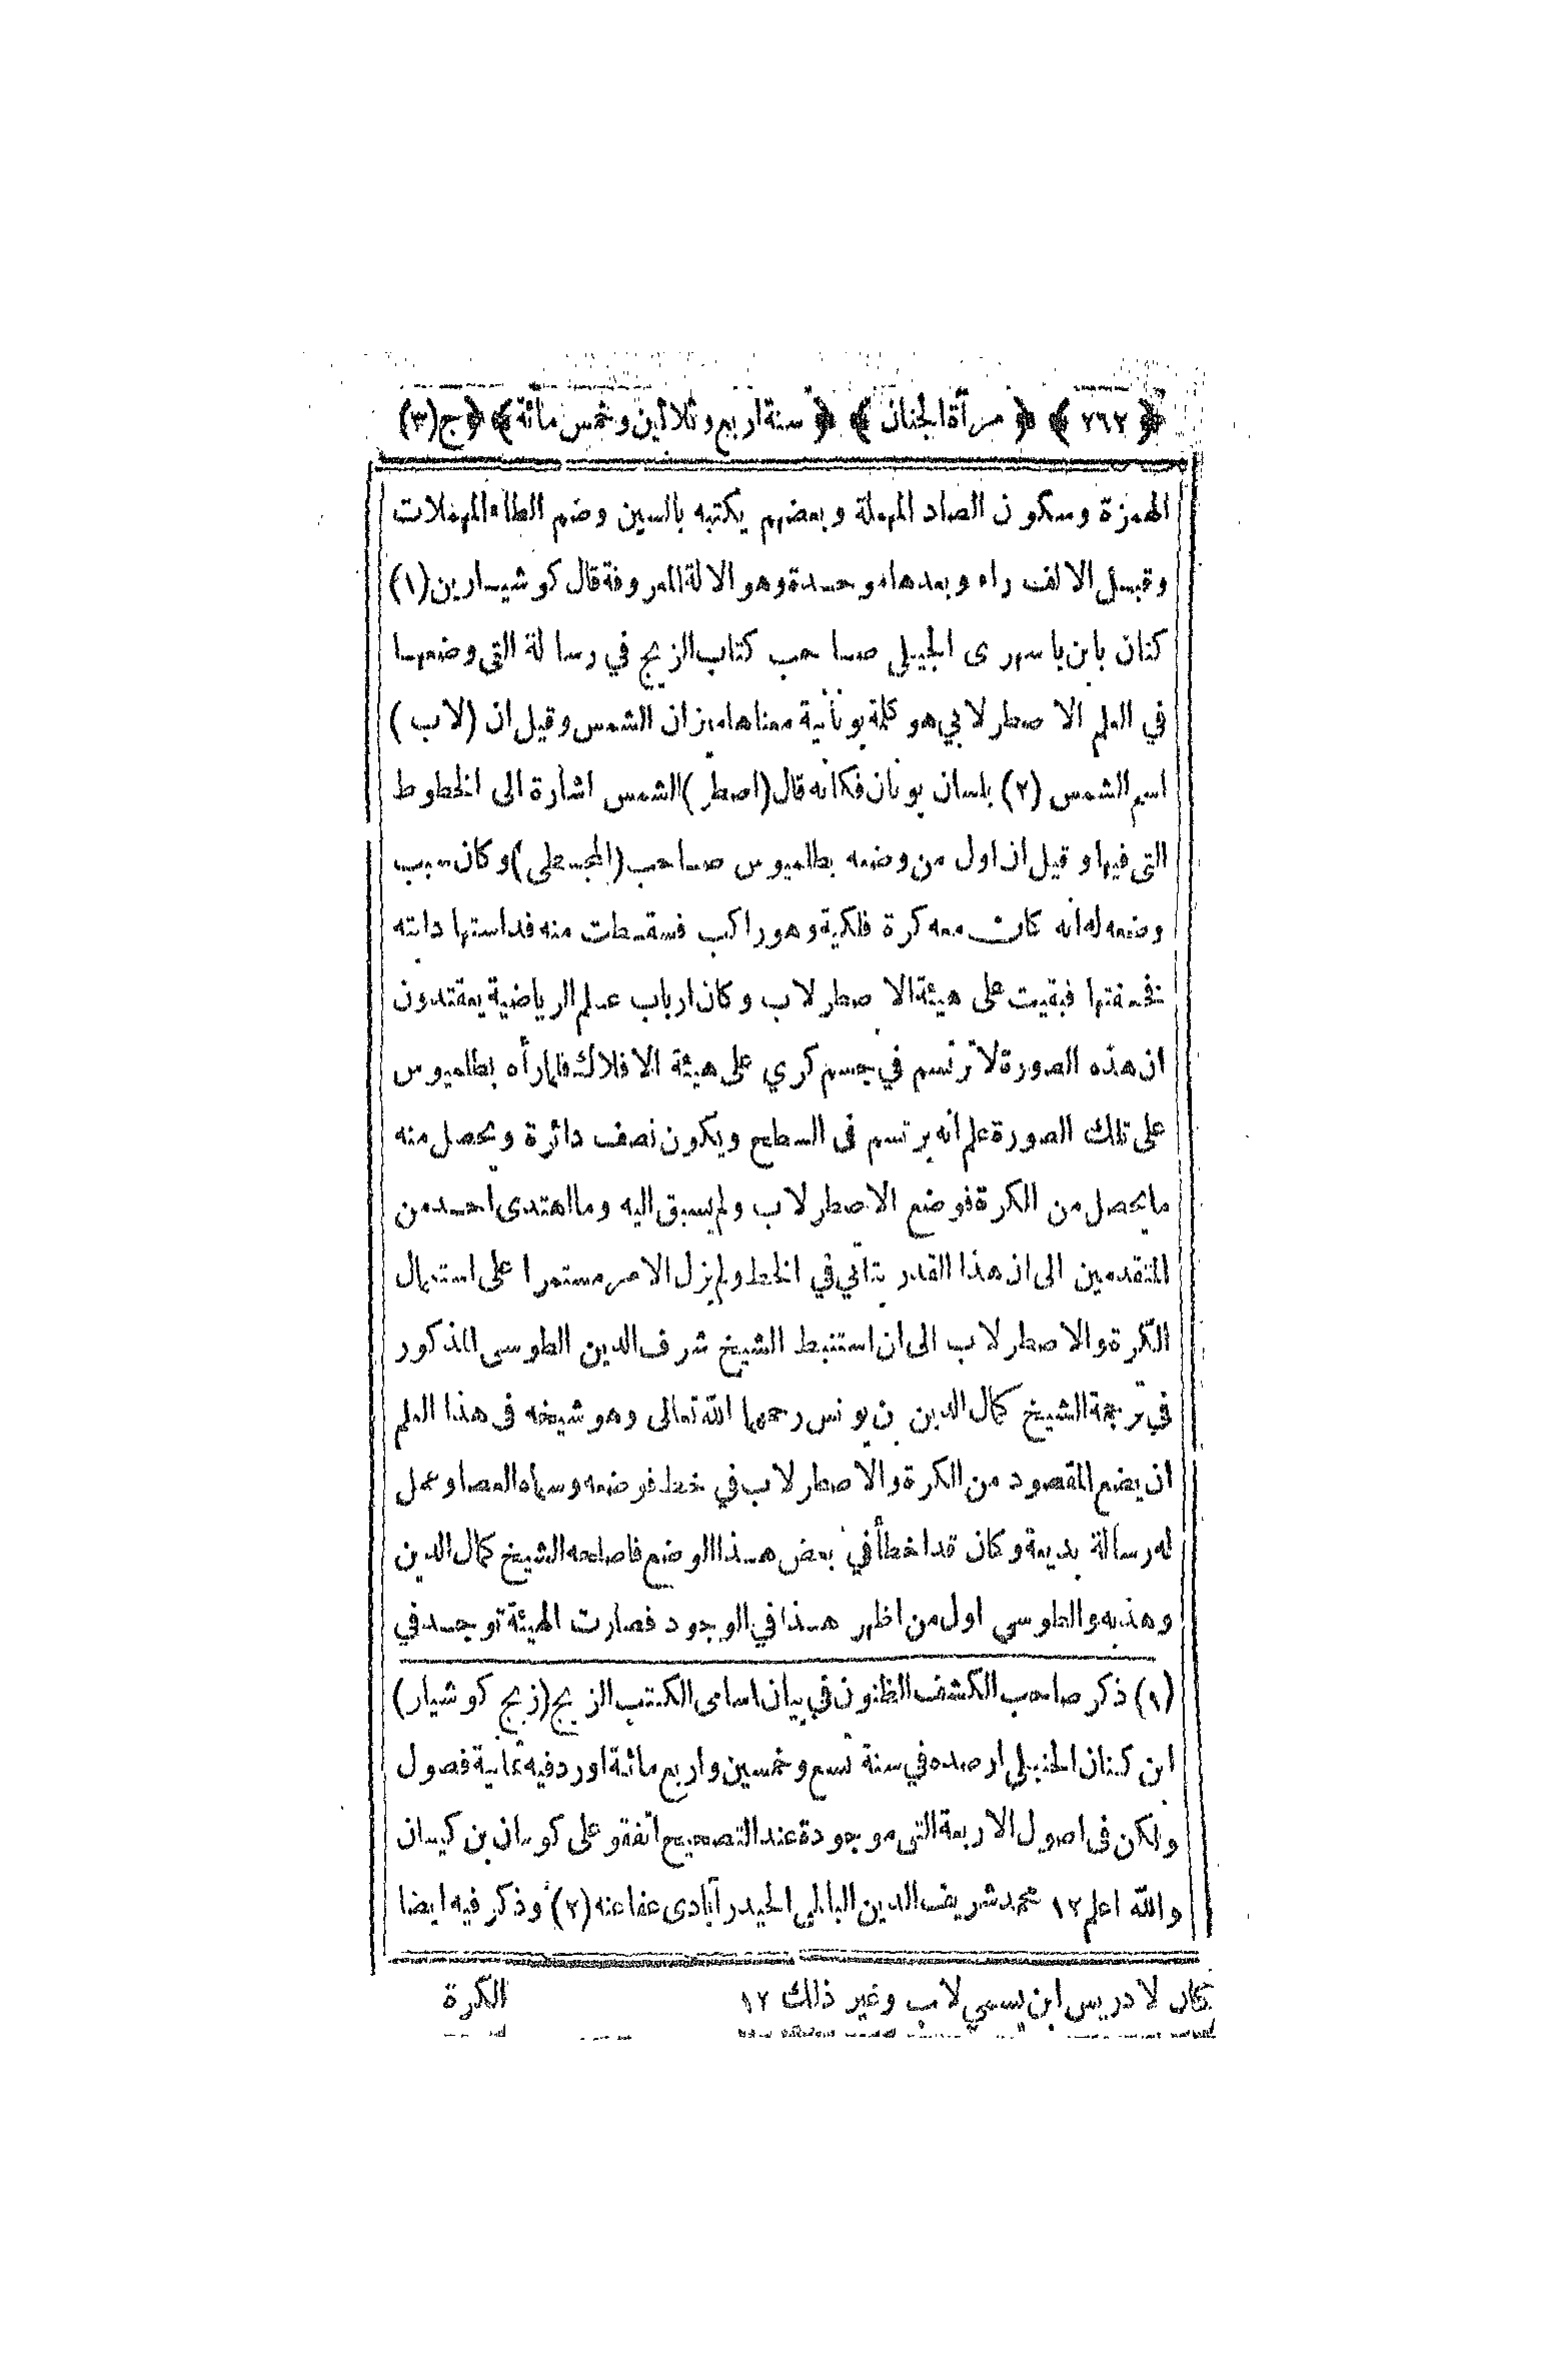 ﴿ ٢٦٢ ﴾ ﴿ مرأة الجنان ﴾ ﴿ سنة اربع وثلاثين وخمس مائة ﴾ ﴿ ج (٣)
الهمزة وسكون الصاد المهملة وبعضهم يكتبه بالسين وضم الطاء المهملات
وقبل الالف راء وبعدها موحدة وهو الالة المعروفة قال كوشيار بن (١)
كنان بابن باسهرى الجيلي صاحب كتاب الزيج في رسالة التى وضعها
في العلم الاصطرلابي هو كلمة يونانية معناها ميزان الشمس وقيل ان (لاب)
اسم الشمس (٢) بلسان يونان فكانه قال (اصطر) الشمس اشارة الى الخطوط
التى فيها وقيل ان اول من وضعه بطلميوس صاحب (المجسطى) وكان سبب
وضعه له انه كان معه كرة فلكية وهو راكب فسقطت منه فداستها دابته
فخسفتها فبقيت على هيئة الاصطرلاب وكان ارباب علم الرياضية يعتقدون
ان هذه الصورة لا ترتسم في جسم كري على هيئة الافلاك فلما رأه بطلميوس
على تلك الصورة علم انه يرتسم فى السطح ويكون نصف دائرة ويحصل منه
ما يحصل من الكرة فوضع الاصطرلاب ولم يسبق اليه وما اهتدى احد من
المتقدمين الى ان هذا القدر يتأتي في الخط ولم يزل الامر مستمرا على استعمال
الكرة والاصطرلاب الى ان استنبط الشيخ شرف الدين الطوسى المذكور
في ترجمة الشيخ كمال الدين بن يونس رحمهما الله تعالى وهو شيخه فى هذا العلم
ان يضع المقصود من الكرة والاصطرلاب في خط فوضعه وسماه العصا وعمل
له رسالة بديعة وكان قد اخطأ في بعض هذا الوضع فاصلحه الشيخ كمال الدين
وهذبه والطوسى اول من اظهر هذا في الوجود فصارت الهيئة توجد في
(١) ذكر صاحب الكشف الظنون في بيان اسامى الكتب الزيج (زيج كوشيار)
ابن كنان الحنبلي ارصده في سنة تسع وخمسين واربع مائة اورد فيه ثمانية فصول
ولكن فى اصول الاربعة التى موجودة عند التصحيح اتفقو على كوسان بن كيسان
والله اعلم ١٢ محمد شريف الدين البالمي الحيدرآبادى عفا عنه (٢) وذكر فيه ايضا
كان لادريس ابن يسمي لاب وغير ذلك ١٢ الكرة